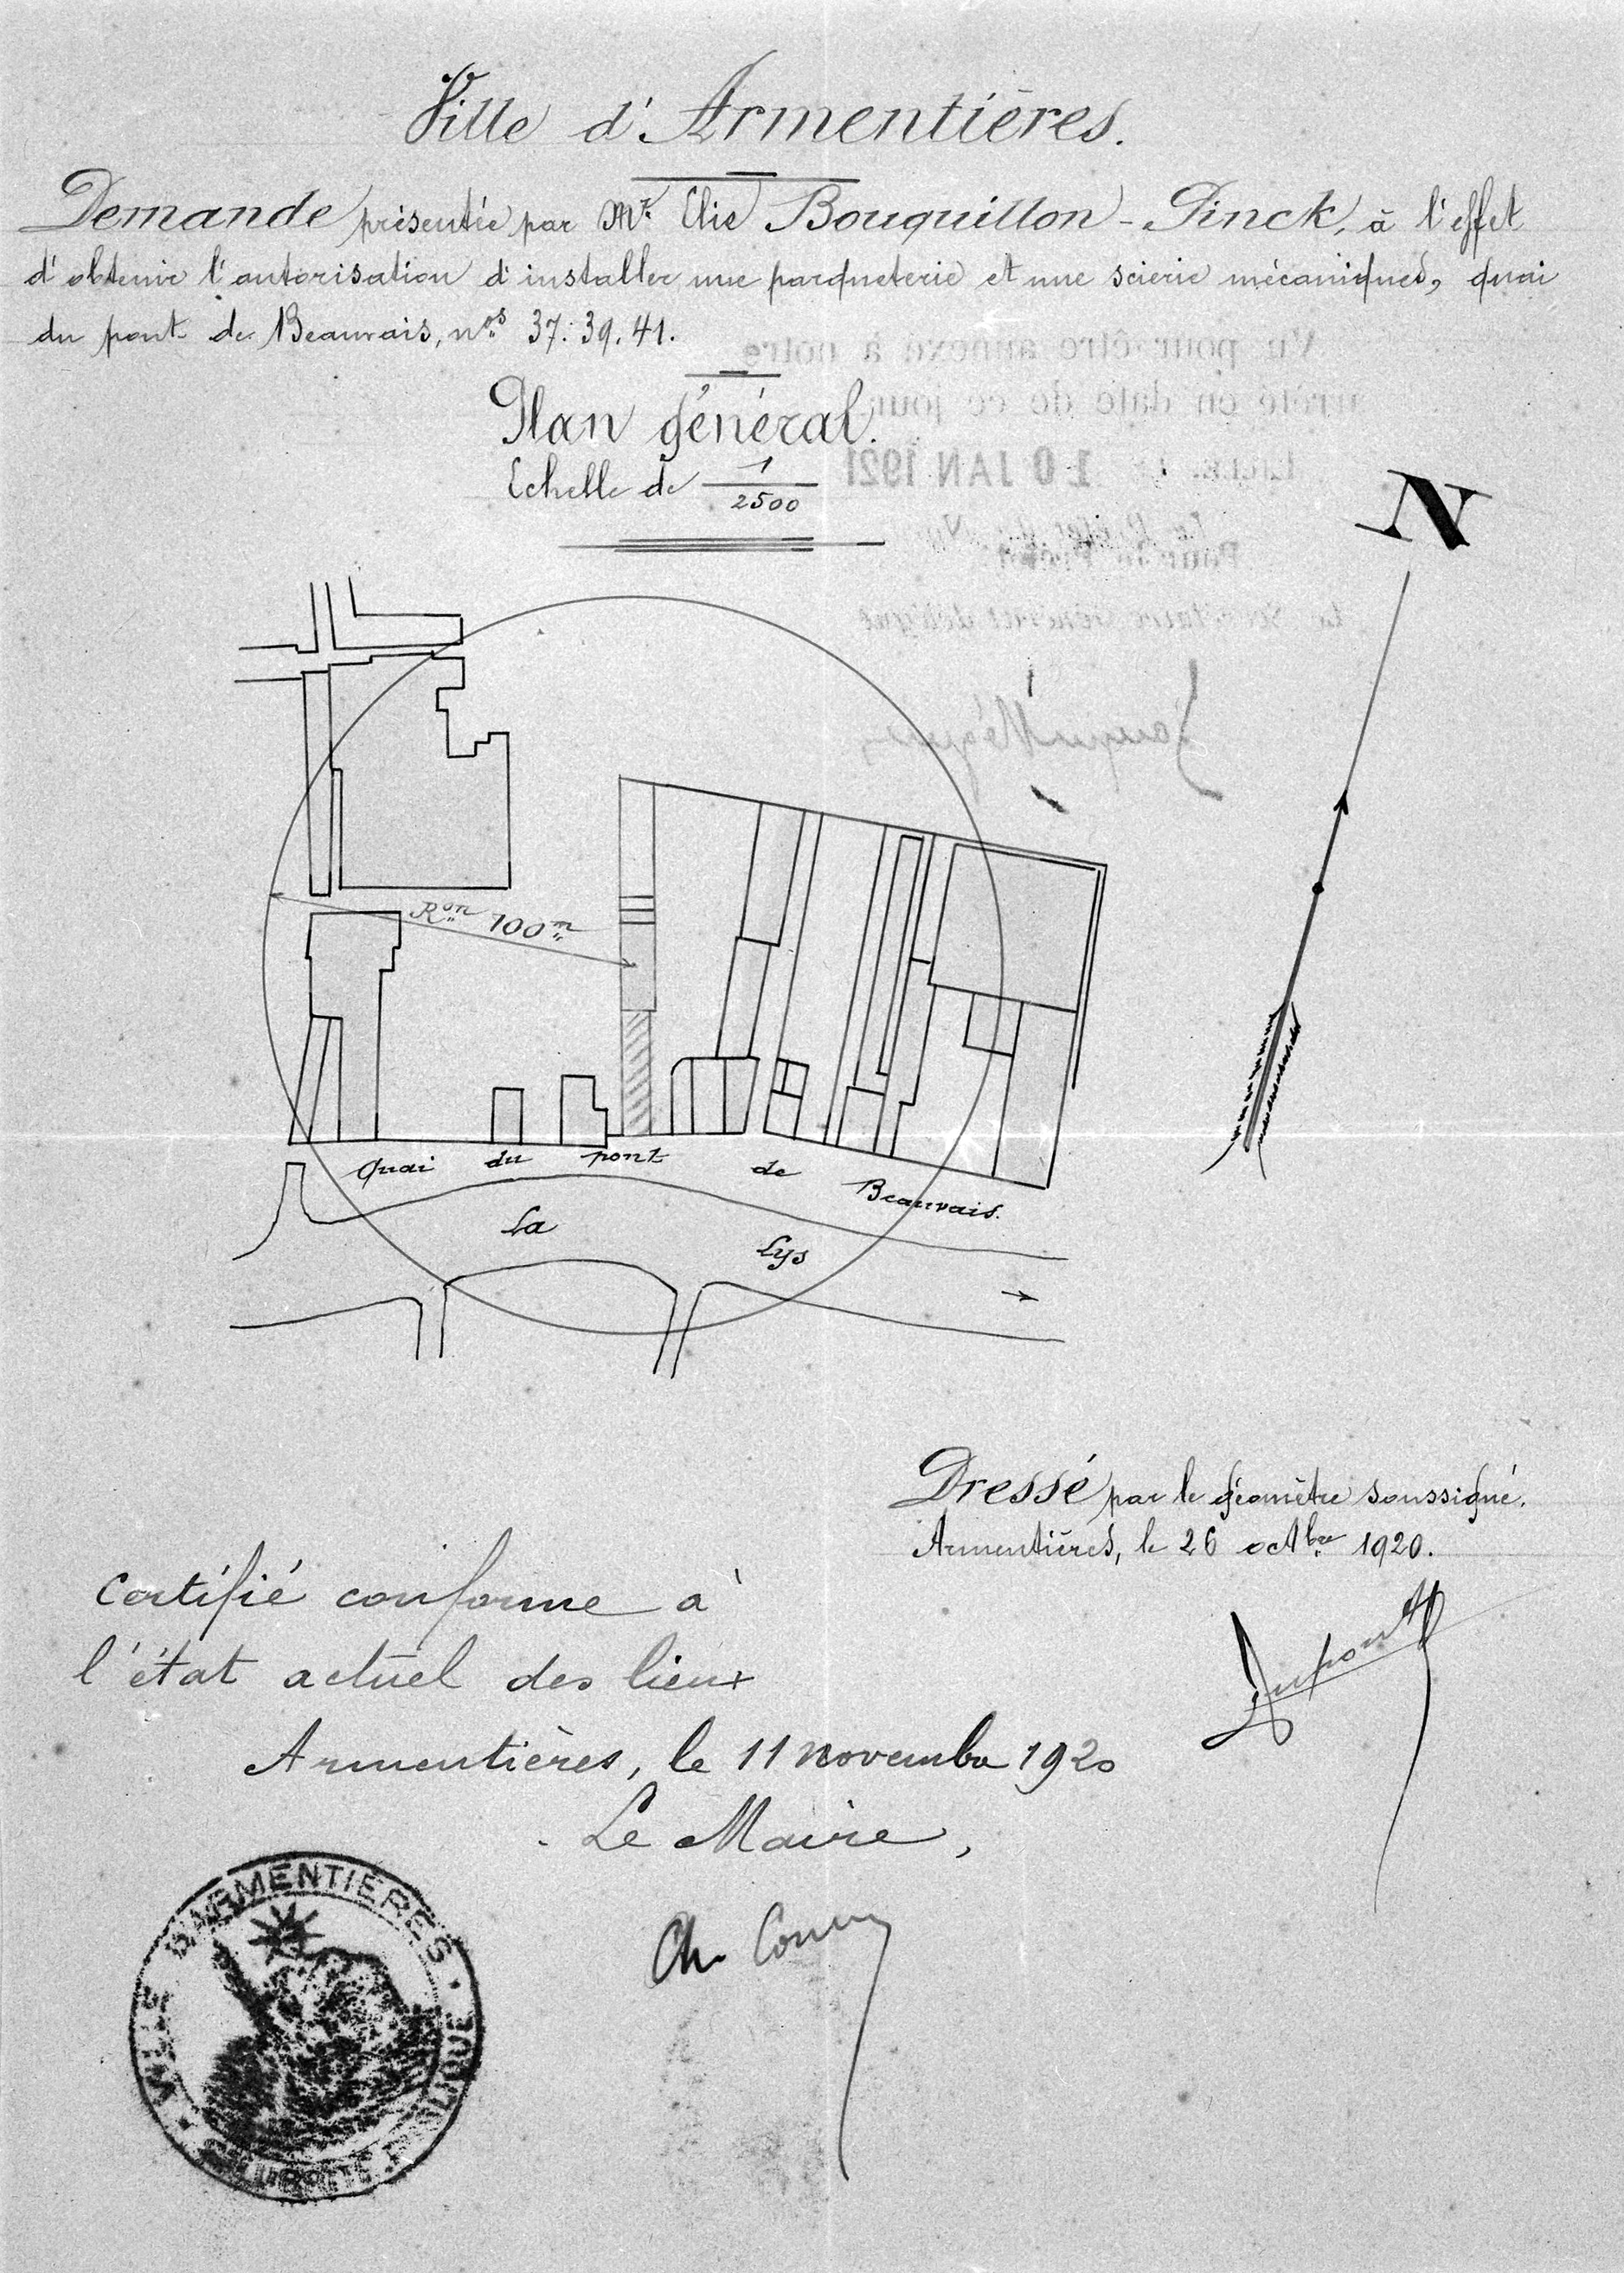 Ville d'Armentières.
Demande présentée par Mr. Elie Bouquillon-Pinck, à l'effet
d'obtenir l'autorisation d'installer une parqueterie et une scierie mécaniques, quai
du pont de Beauvais, nos 37. 39. 41.
Vu pour être annexé à notre
arrêté en date de ce jour
Lille, le 10 JAN 1921
Pour le Préfet
Le Secrétaire Général délégué
Plan général.
Echelle de 1/2500
N
Ron 100m
Quai du pont de Beauvais.
La Lys
Dressé par le géomètre soussigné.
Armentières, le 26 octbre 1920.
Dupont
Certifié conforme à
l'état actuel des lieux
Armentières, le 11 novembre 1920
Le Maire,
Ch.
VILLE D'ARMENTIERES